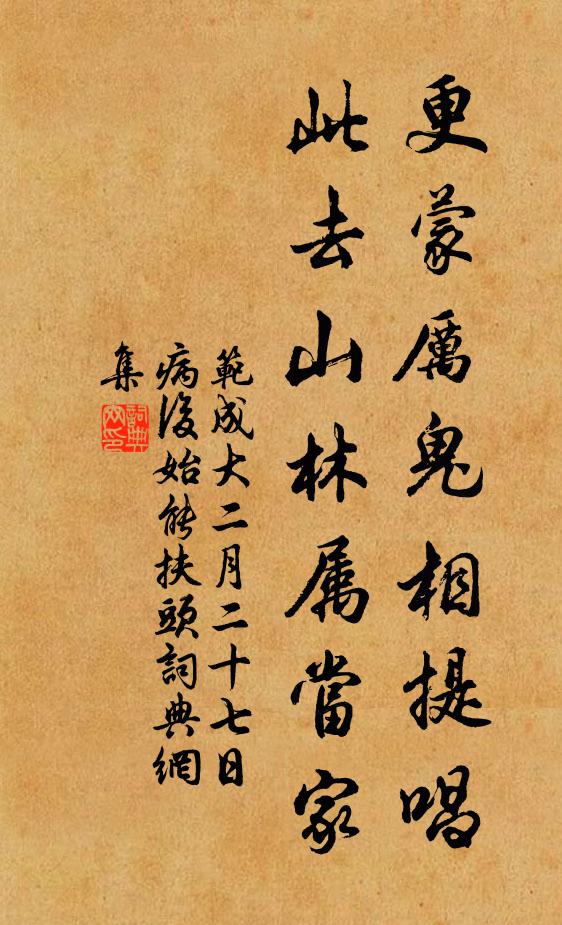 更蒙厲鬼相提唱
此去山林属當家
範成大二月二十七日
病後始能扶頭詞典網
集
詞典網印